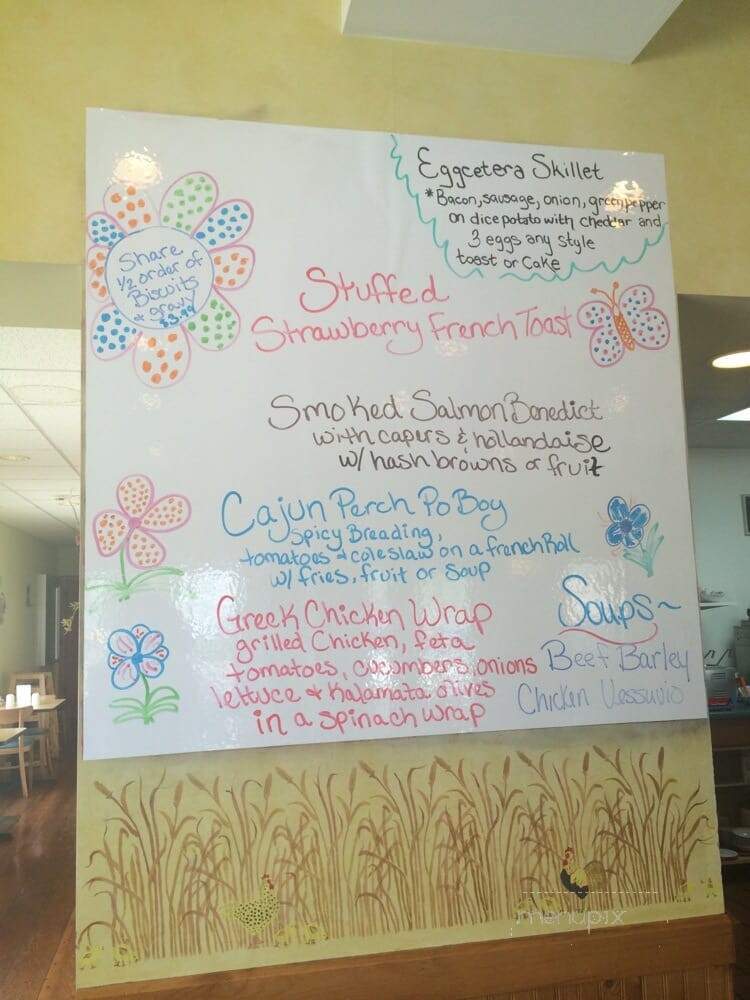 Eggcetera Skillet
*Bacon, sausage, onion, green pepper
on dice potato with cheddar and
3 eggs any style
toast or Cake
Share
1/2 order of
Biscuits
& gravy
$3.99
Stuffed
Strawberry French Toast
Smoked Salmon Benedict
with capers & hollandaise
w/ hash browns or fruit
Cajun Perch Po Boy
Spicy Breading,
tomatoes & coleslaw on a french Roll
w/ fries, fruit or soup
Greek Chicken Wrap
grilled Chicken, feta
tomatoes, cucumbers, onions
lettuce & Kalamata olives
in a spinach wrap
Soups~
Beef Barley
Chicken Vessuvio
menupix